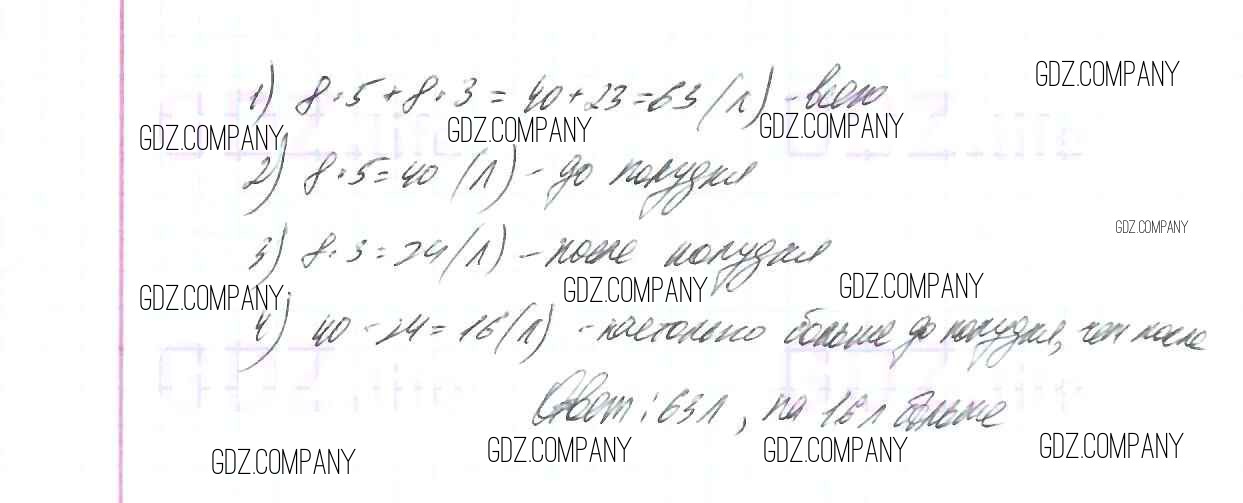 1) 8·5+8·3=40+23=63(л) - всего
GDZ.COMPANY
GDZ.COMPANY GDZ.COMPANY GDZ.COMPANY
2) 8·5=40 (л) - до полудня
GDZ.COMPANY
3) 8·3=24(л) - после полудня
GDZ.COMPANY GDZ.COMPANY GDZ.COMPANY
4) 40-24=16(л) - настолько больше до полудня, чем после
Ответ: 63л, на 16л больше
GDZ.COMPANY GDZ.COMPANY GDZ.COMPANY GDZ.COMPANY